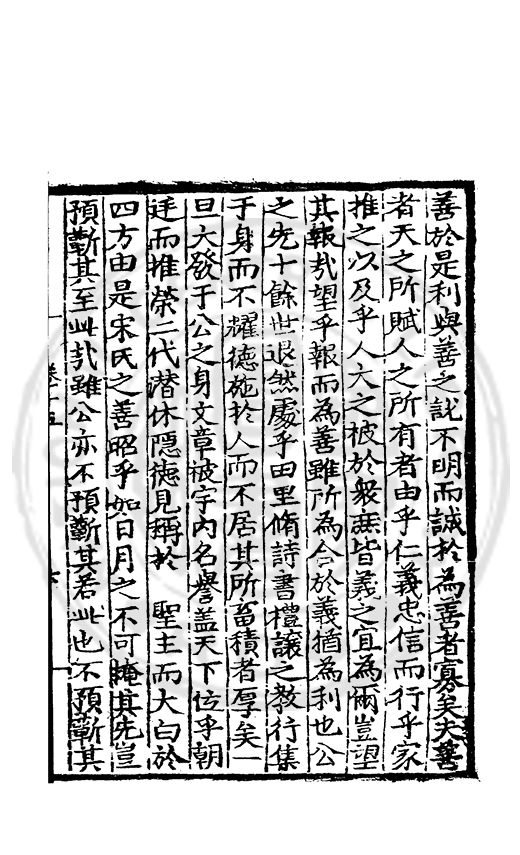 善於是利與善之說不明而誠於為善者寡矣夫善
者天之所賦人之所有者由乎仁義忠信而行乎家
推之以及乎人大之被於衆庶皆義之宜為爾豈望
其報㢤望乎報而為善雖所為合於義猶為利也公
之先十餘世退然處乎田里脩詩書禮讓之教行集
于身而不耀德施於人而不居其所畜積者厚矣一
旦大發于公之身文章被宇內名譽盖天下位乎朝
廷而推榮二代潜休隱德見稱於 聖主而大白於
四方由是宋氏之善昭乎如日月之不可掩其先豈
預蘄其至此㢤雖公亦不預蘄其若此也不預蘄其
卷十五